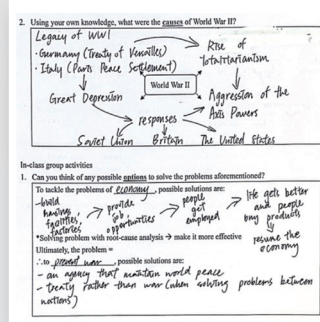 2. Using your own knowledge, what were the causes of World War II?
Legacy of WWI
· Germany (Treaty of Versailles)
· Italy (Paris Peace Settlement)
Rise of
Totalitarianism
World War II
Great Depression
Aggression of the
Axis Powers
responses
Soviet Union Britain The United States
In-class group activities
1. Can you think of any possible options to solve the problems aforementioned?
To tackle the problems of economy, possible solutions are:
- build
housing,
facilities,
factories
provide
job
opportunities
people
get
employed
life gets better
and people
buy products
resume the
economy
*Solving problem with root-cause analysis → make it more effective
Ultimately, the problem =
∴ to prevent war, possible solutions are:
- an agency that maintain world peace
- treaty rather than war (when solving problems between
nations)